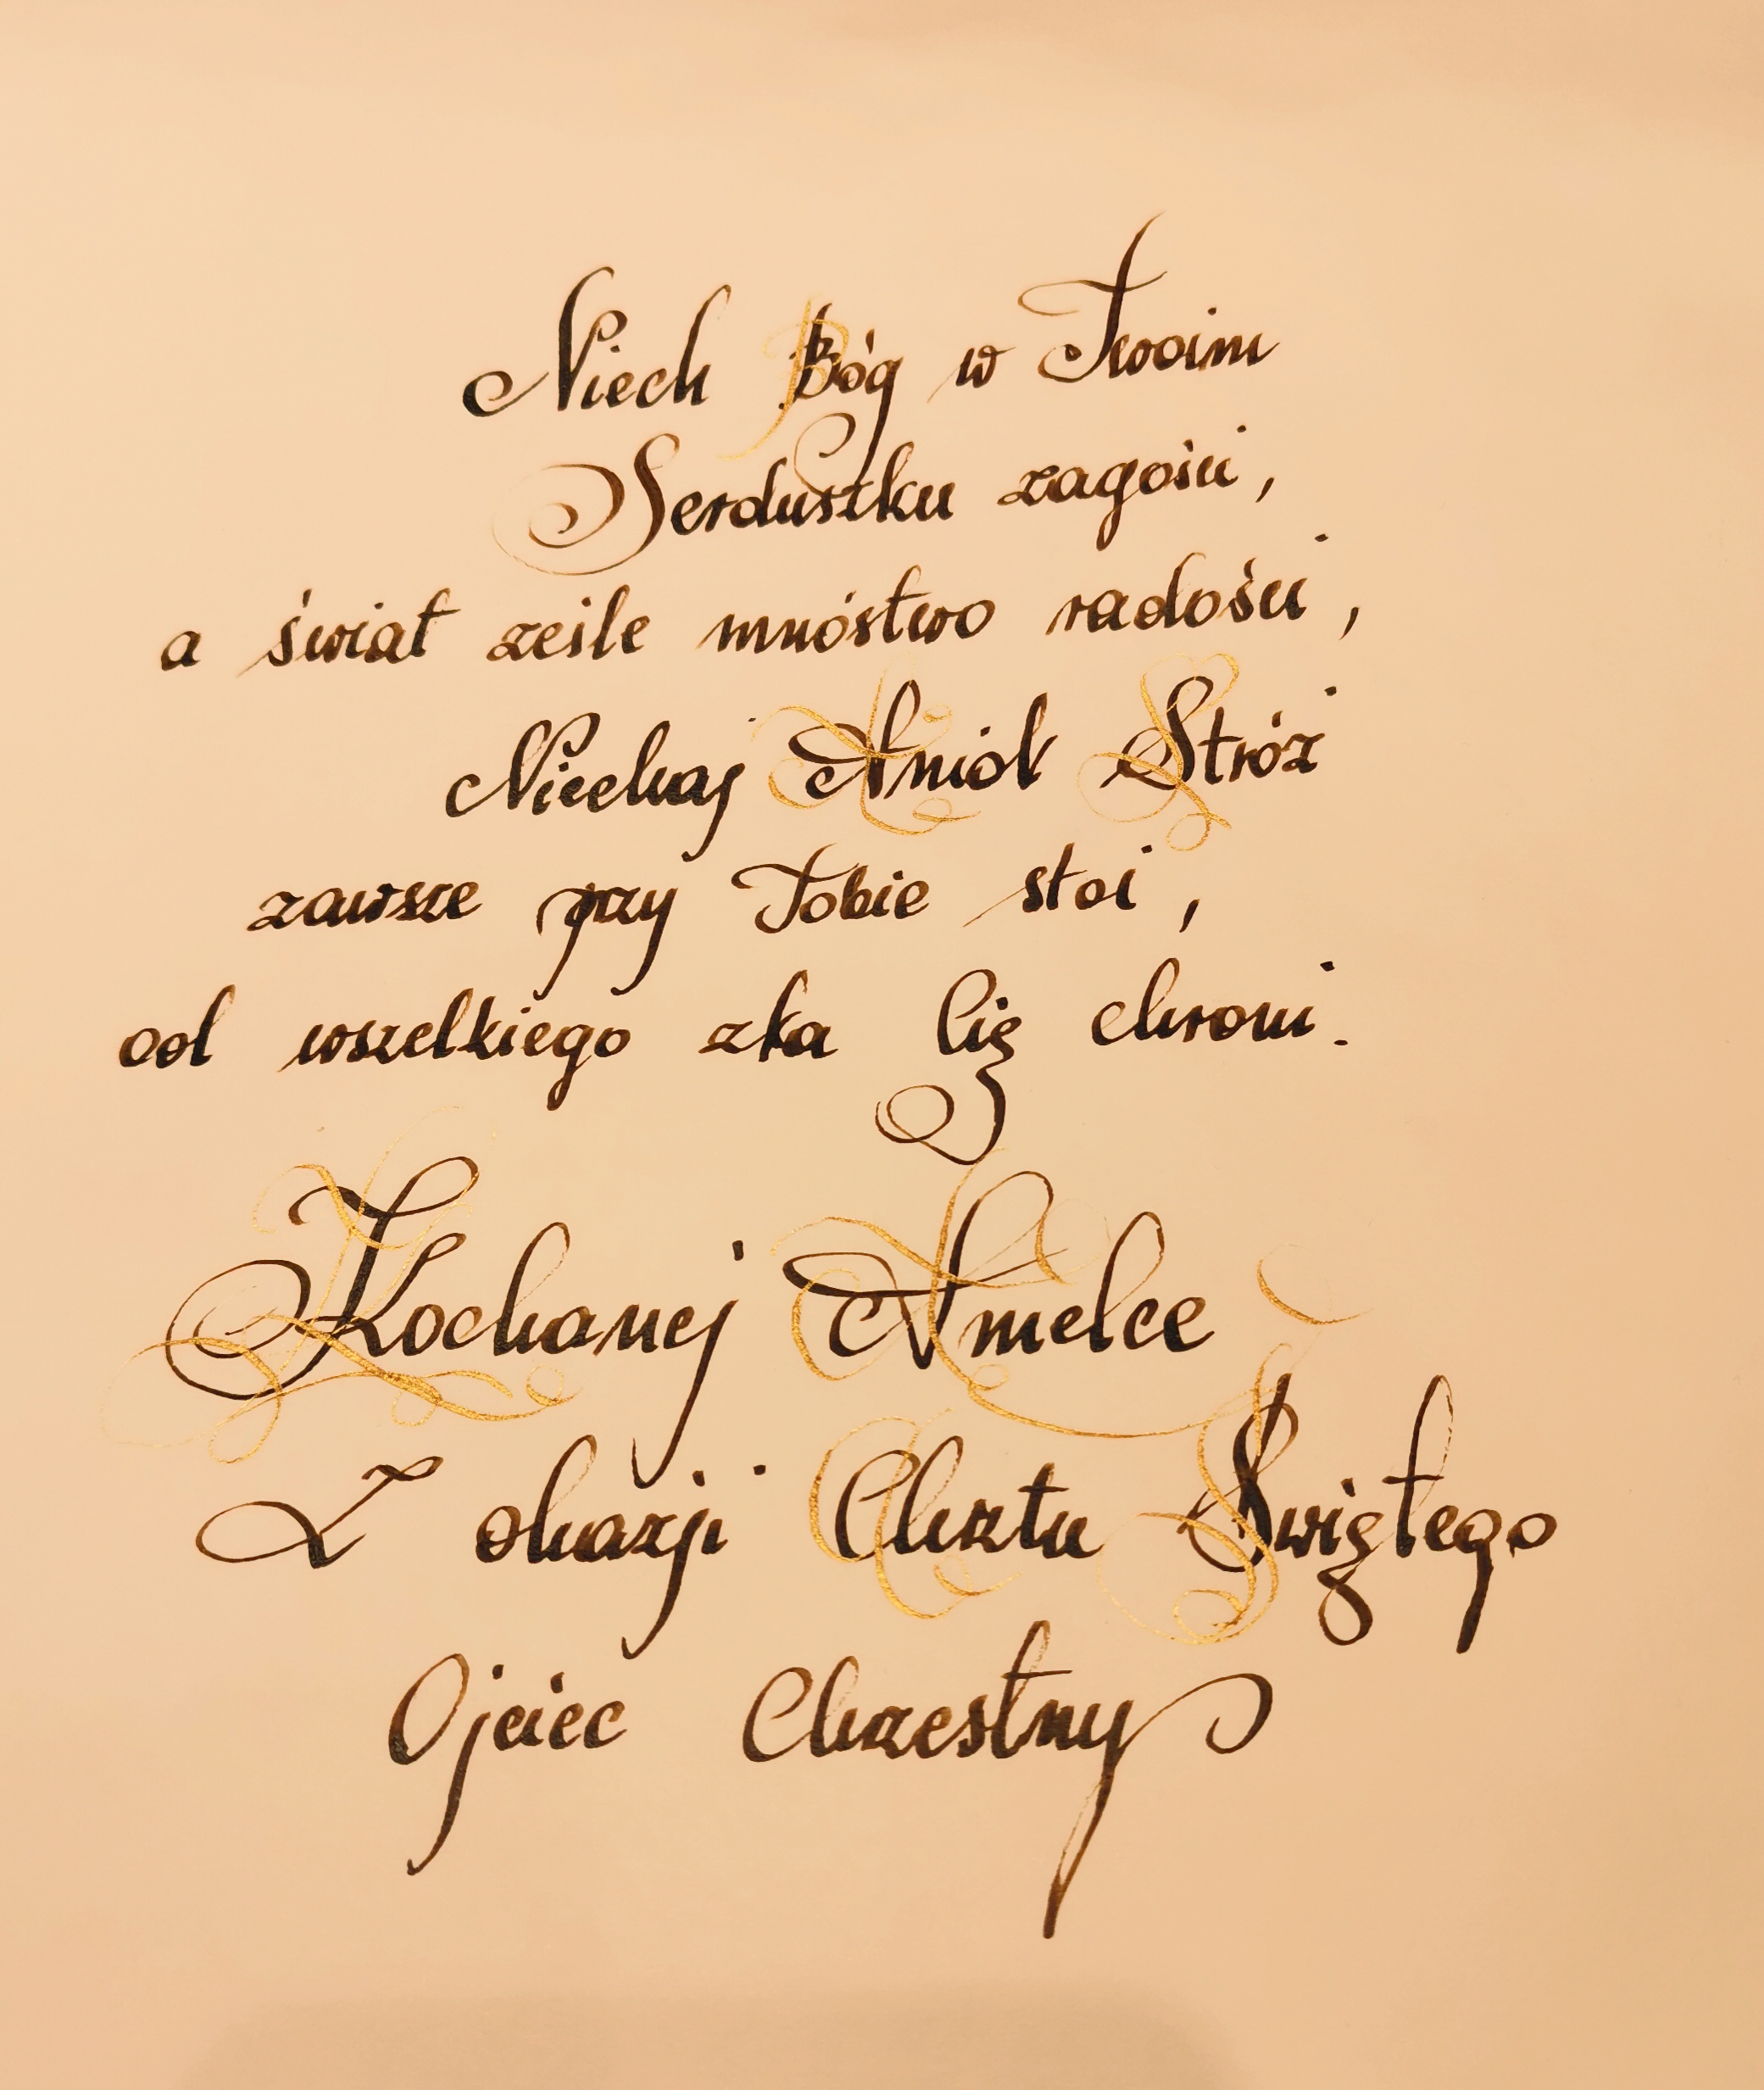 Niech Bóg w Twoim
Serduszku zagości,
a świat ześle mnóstwo radości,
Niechaj Anioł Stróż
zawsze przy Tobie stoi,
od wszelkiego zła Cię chroni.
Kochanej Amelce
Z okazji Chrztu Świętego
Ojciec Chrzestny